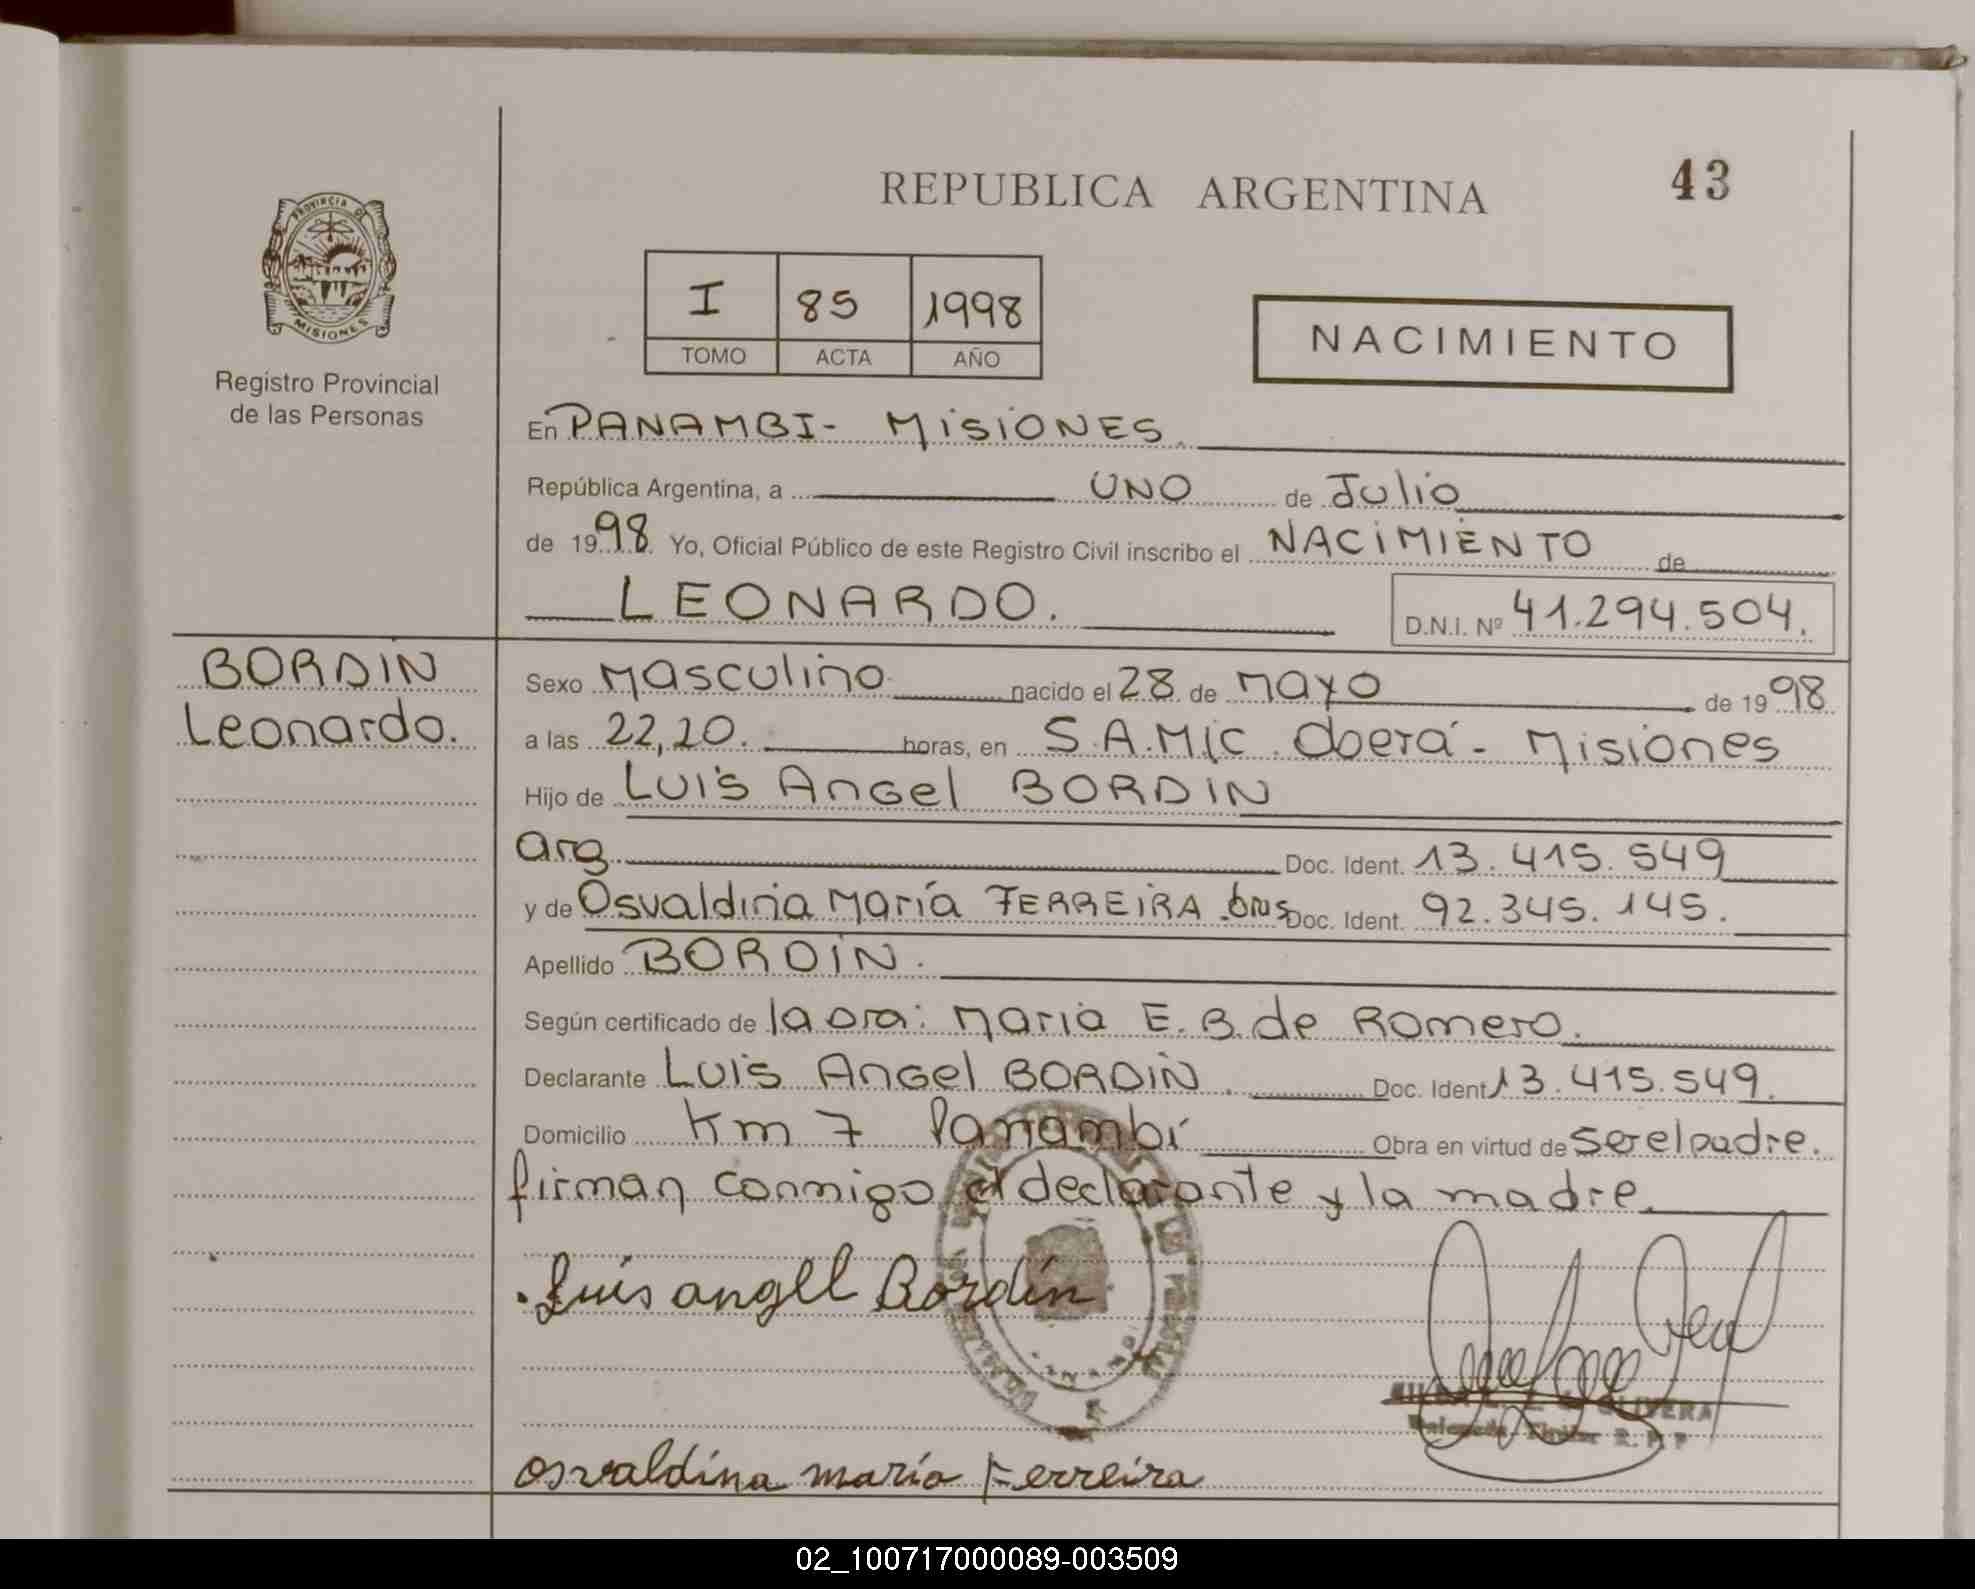 REPUBLICA ARGENTINA
43
PROVINCIA DE
MISIONES
Registro Provincial
de las Personas
I 85 1998
TOMO ACTA AÑO
NACIMIENTO
En PANAMBI - MISIONES.
República Argentina, a UNO de Julio
de 1998. Yo, Oficial Público de este Registro Civil inscribo el NACIMIENTO de
LEONARDO.
D.N.I. Nº 41.294.504.
BORDIN
Leonardo.
Sexo Masculino nacido el 28 de Mayo de 1998
a las 22,20. horas, en S.A.Mic. Oberá - Misiones
Hijo de Luis Angel BORDIN
arg Doc. Ident. 13.415.549
y de Osvaldina María FERREIRA .bras Doc. Ident. 92.345.145.
Apellido BORDIN.
Según certificado de la Dra: Maria E. B. de Romero.
Declarante Luis Angel BORDIN. Doc. Ident 13.415.549.
Domicilio Km 7 Panambí Obra en virtud de ser el padre.
firman conmigo el declarante y la madre.
Luis angel Bordín
OLIVERA
Titular R. P. P
osvaldina maría Ferreira
02_100717000089-003509